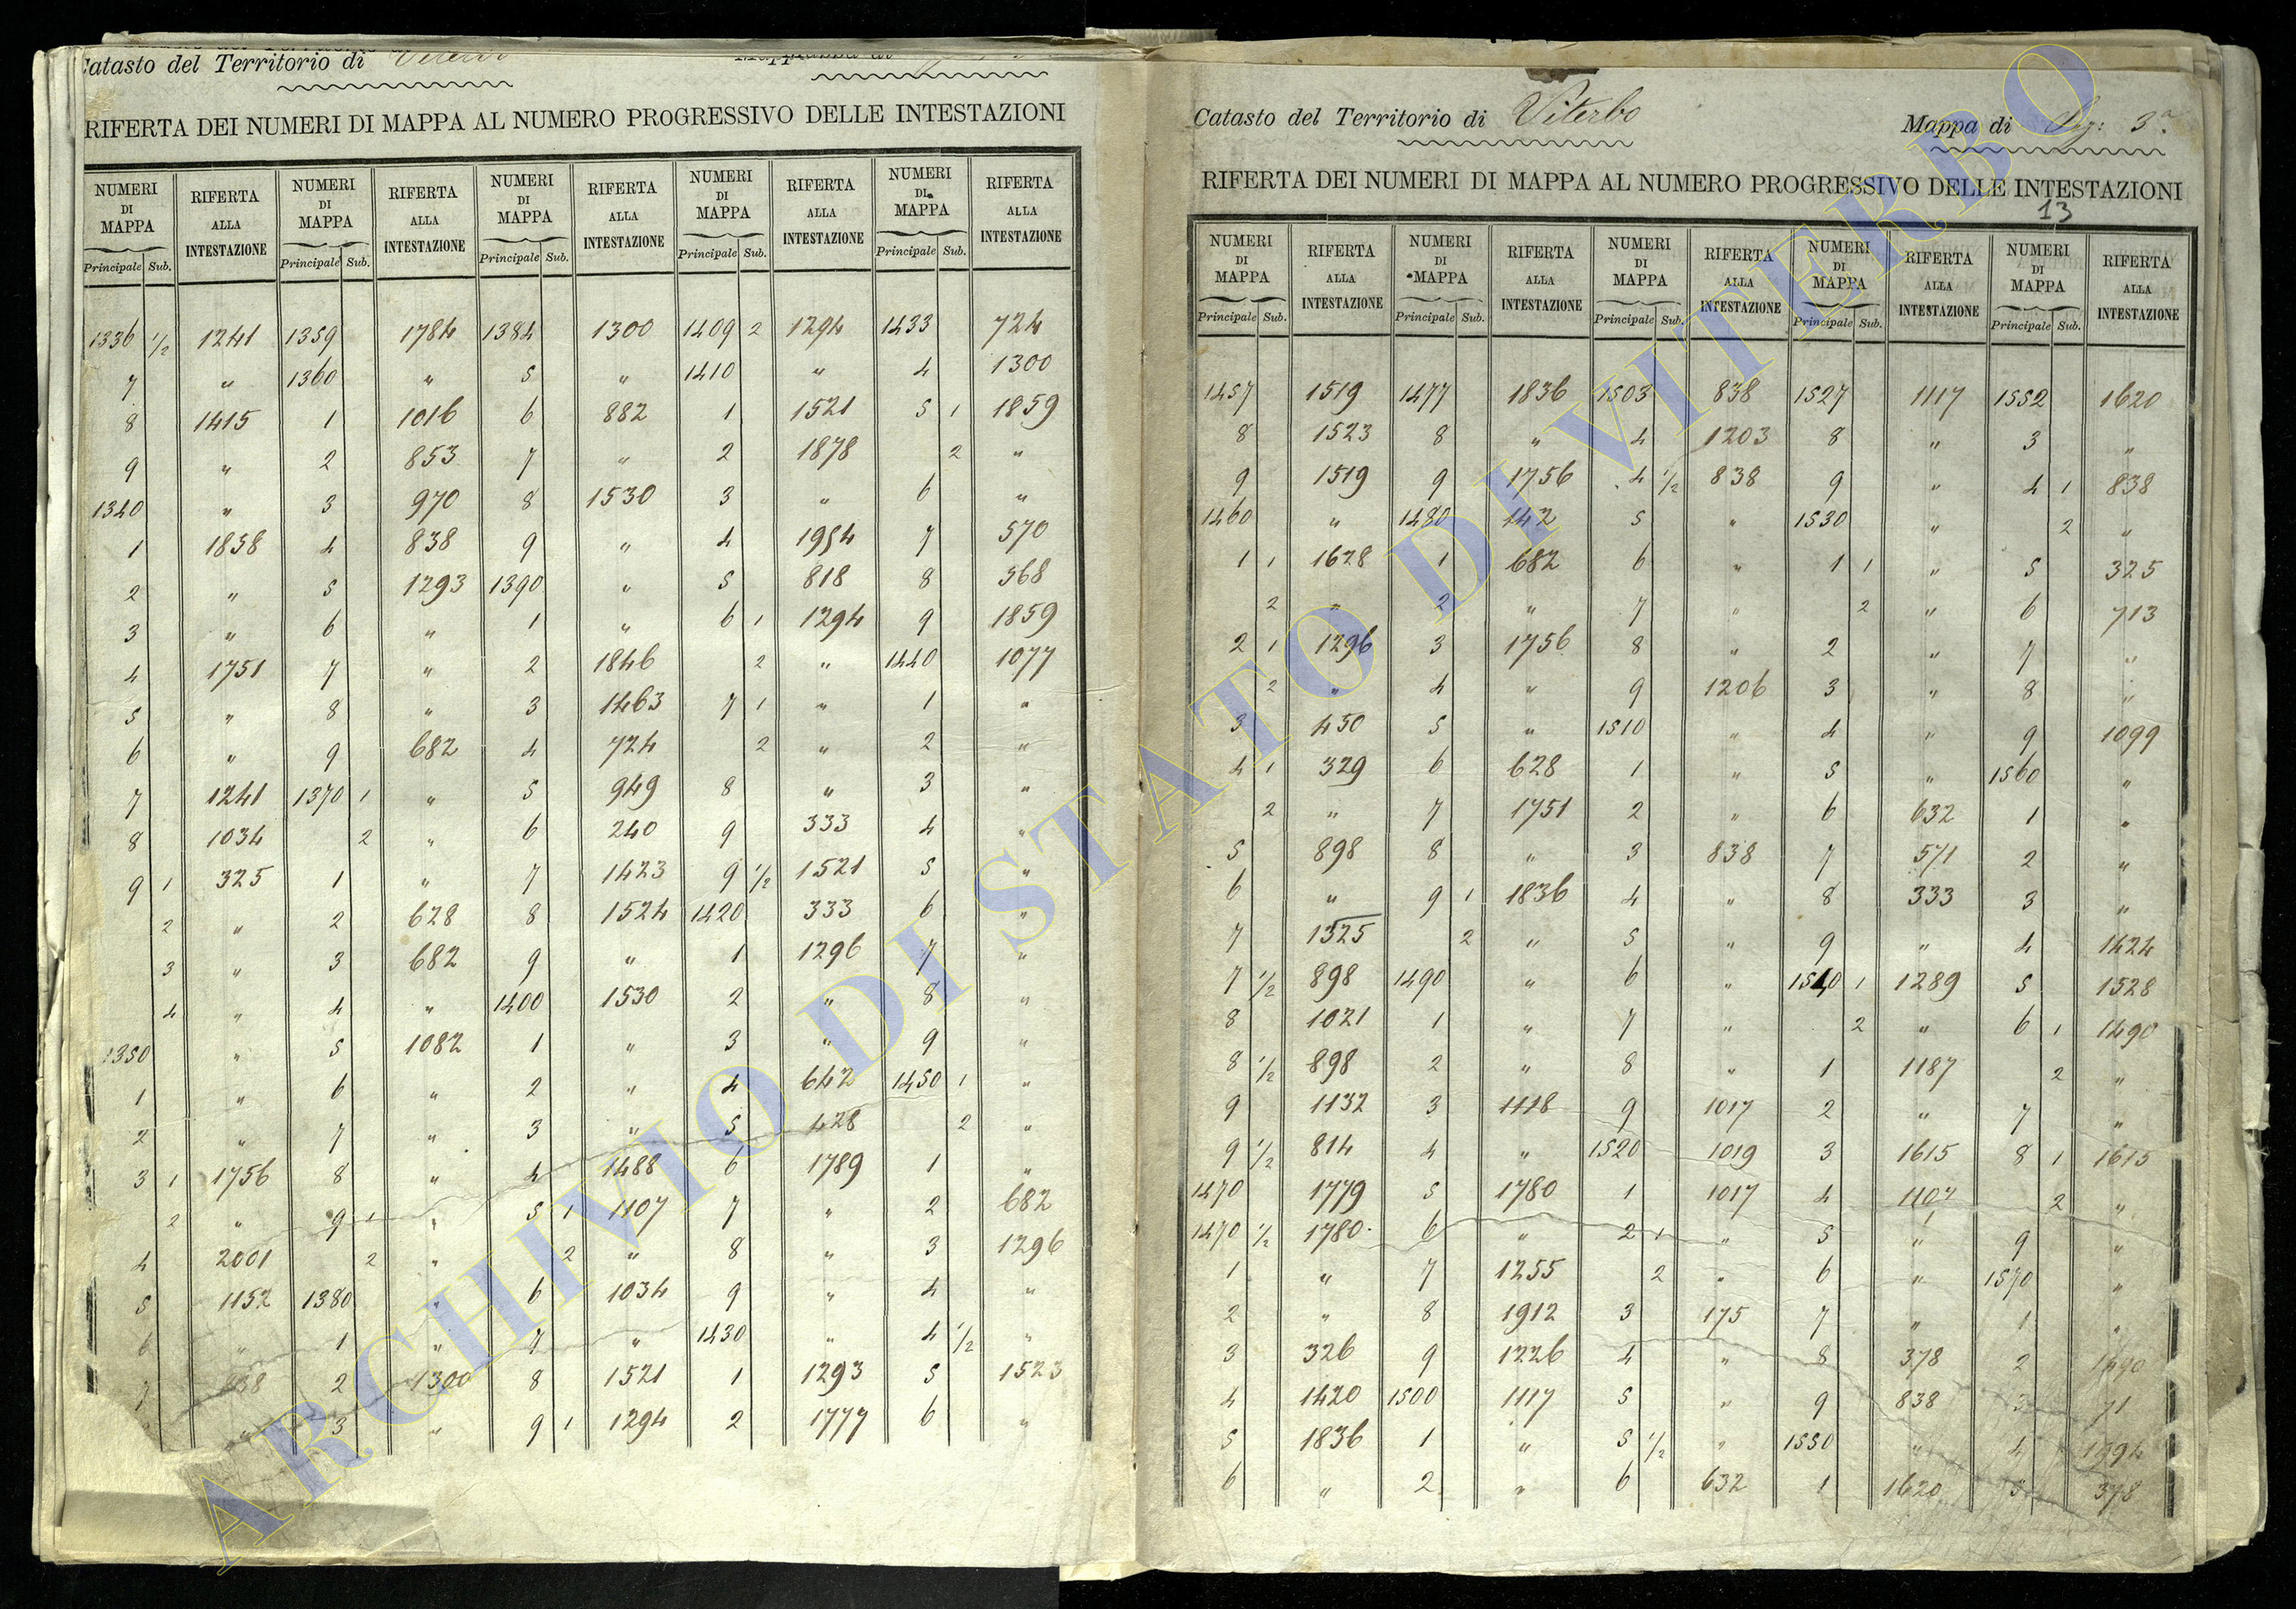 Catasto del Territorio di Viterbo
RIFERTA DEI NUMERI DI MAPPA AL NUMERO PROGRESSIVO DELLE INTESTAZIONI
NUMERI DI MAPPA RIFERTA ALLA INTESTAZIONE NUMERI DI MAPPA RIFERTA ALLA INTESTAZIONE NUMERI DI MAPPA RIFERTA ALLA INTESTAZIONE NUMERI DI MAPPA RIFERTA ALLA INTESTAZIONE NUMERI DI MAPPA RIFERTA ALLA INTESTAZIONE
Principale Sub. Principale Sub. Principale Sub. Principale Sub. Principale Sub.
1336 1/2 1241 1359 1784 1384 1300 1409 2 1294 1433 724
7 " 1360 " 5 " 1410 " 4 1300
8 1415 1 1016 6 882 1 1521 5 1 1859
9 " 2 853 7 " 2 1878 2 "
1340 " 3 970 8 1530 3 " 6 "
1 1858 4 838 9 " 4 7 570
2 " 5 1293 1390 " 5 818 8 568
3 " 6 " 1 " 6 1 1294 9 1859
4 1751 7 " 2 1846 2 " 1440 1077
5 " 8 " 3 1463 7 1 " 1 "
6 " 9 682 4 724 2 " 2 "
7 1241 1370 1 " 5 949 8 " 3 "
8 1034 2 " 6 240 9 333 4 "
9 1 325 1 " 7 1423 9 1/2 1521 5 "
2 " 2 628 8 1524 1420 333 6 "
3 " 3 682 9 " 1 1296 7 "
4 " 4 " 1400 1530 2 " 8 "
1350 " 5 1082 1 " 3 " 9 "
1 " 6 " 2 " 4 642 1450 1 "
2 " 7 " 3 " 5 428 2 "
3 1 1756 8 " 4 1488 6 1789 1 "
2 " 9 1 " 5 1 1107 7 " 2 682
4 2001 2 " 2 " 8 " 3 1296
5 1152 1380 " 6 1034 9 " 4 "
6 " 1 " 7 " 1430 " 4 1/2 "
7 2 1300 8 1521 1 1293 5 1523
" 3 " 9 1 1294 2 1777 6 "
Catasto del Territorio di Viterbo Mappa di Sez: 3ª
RIFERTA DEI NUMERI DI MAPPA AL NUMERO PROGRESSIVO DELLE INTESTAZIONI
13
NUMERI DI MAPPA RIFERTA ALLA INTESTAZIONE NUMERI DI MAPPA RIFERTA ALLA INTESTAZIONE NUMERI DI MAPPA RIFERTA ALLA INTESTAZIONE NUMERI DI MAPPA RIFERTA ALLA INTESTAZIONE NUMERI DI MAPPA RIFERTA ALLA INTESTAZIONE
Principale Sub. Principale Sub. Principale Sub. Principale Sub. Principale Sub.
1457 1519 1477 1836 1503 838 1527 1117 1552 1620
8 1523 8 " 4 1203 8 " 3 "
9 1519 9 1756 4 1/2 838 9 " 4 1 838
1460 " 1480 142 5 " 1530 " 2 "
1 1 1628 1 682 6 " 1 1 " 5 325
2 " 2 " 7 " 2 " 6 713
2 1 1296 3 1756 8 " 2 " 7 "
2 " 4 " 9 1206 3 " 8 "
3 450 5 " 1510 " 4 " 9 1099
4 1 329 6 628 1 " 5 " 1560 "
2 " 7 1751 2 " 6 632 1 "
5 898 8 " 3 838 7 571 2 "
6 " 9 1 1836 4 " 8 333 3 "
7 1325 2 " 5 " 9 " 4 1424
7 1/2 898 1490 " 6 " 1540 1 1289 5 1528
8 1021 1 " 7 " 2 " 6 1 1490
8 1/2 898 2 " 8 " 1 1187 2 "
9 1132 3 1118 9 1017 2 " 7 "
9 1/2 814 4 " 1520 1019 3 1615 8 1 1615
1470 1779 5 1780 1 1017 4 1107 2 "
1470 1/2 1780 6 " 2 1 " 5 " 9 "
1 " 7 1255 2 " 6 " 1570 "
2 " 8 1912 3 175 7 " 1 "
3 326 9 1226 4 " 8 378 2
4 1420 1500 1117 5 " 9 838 3 71
5 1836 1 " 5 1/2 " 1550 " 4
6 " 2 " 6 632 1 1620 5 378
ARCHIVIO DI STATO DI VITERBO